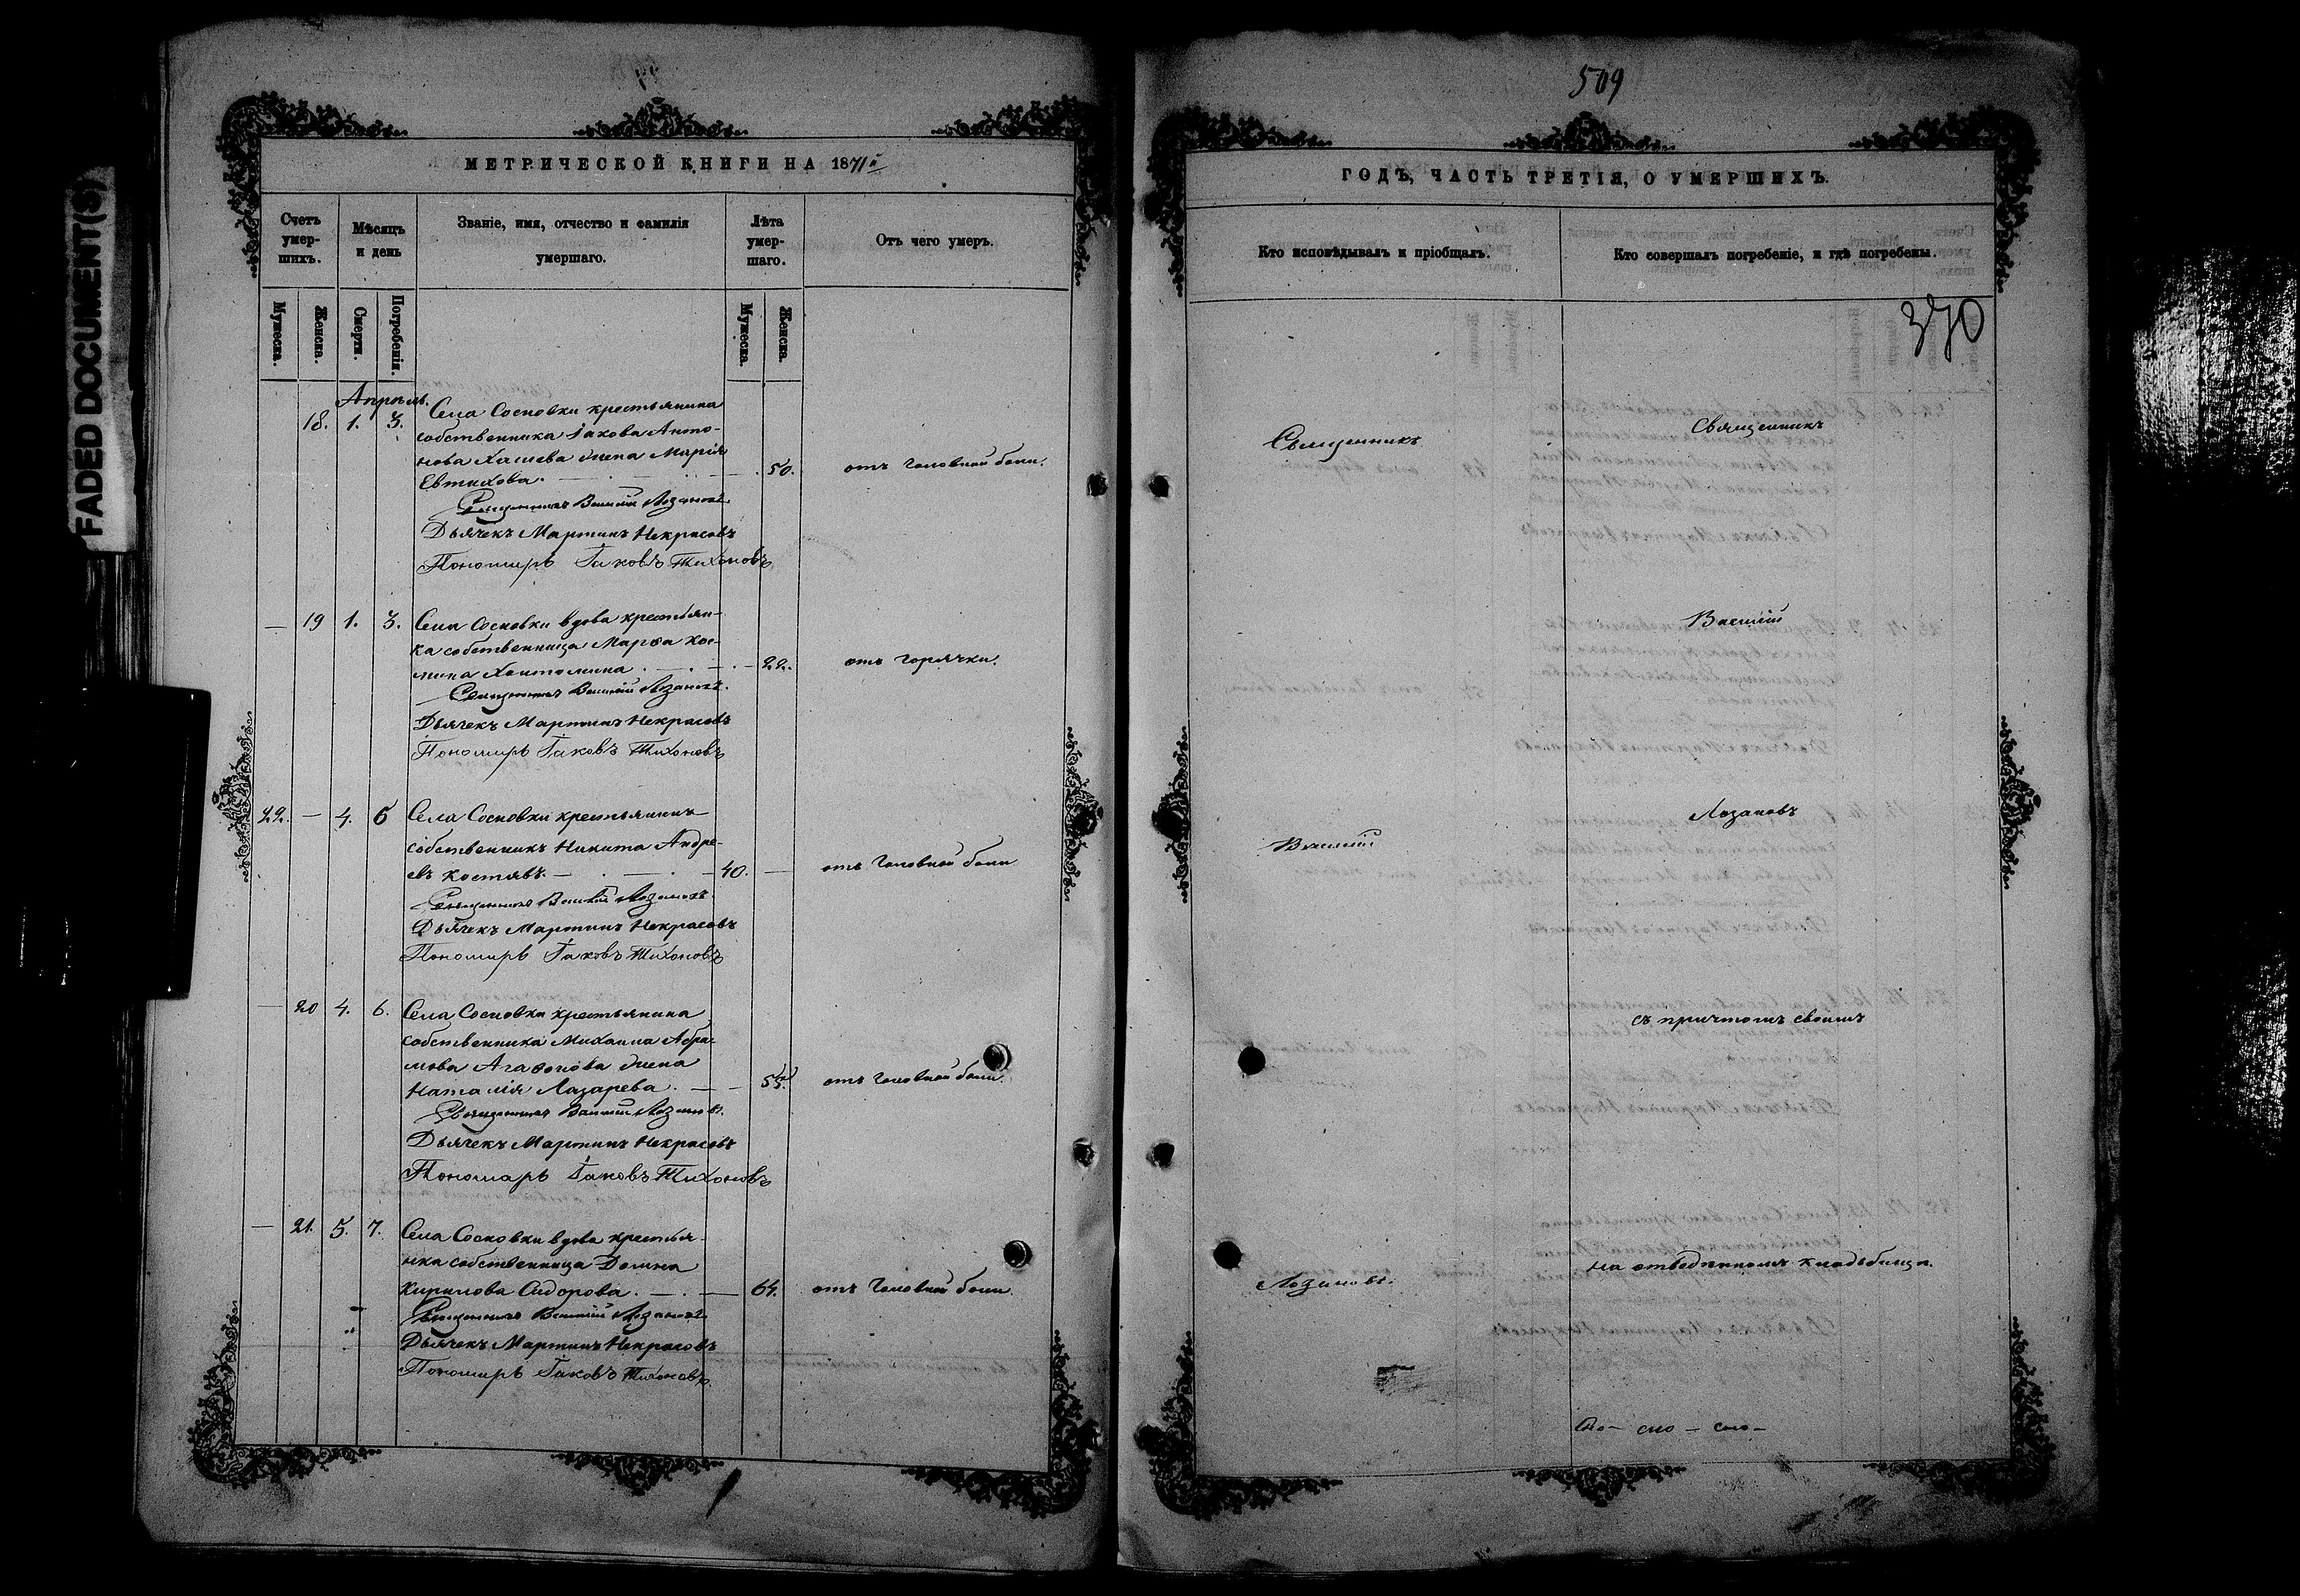 FADED DOCUMENT(S)
МЕТРИЧЕСКОЙ КНИГИ НА 1871й
Счетъ умер-шихъ.
Мѣсяцъ и день
Званіе, имя, отчество и фамилія умершаго.
Лѣта умер-шаго.
Отъ чего умеръ.
Мужеска.
Женска.
Смерти.
Погребенія.
Мужеска.
Женска.
Апрѣль.
18. 1. 3. Села Сосновки крестьянина
собственника Іакова Анто-
нова жена Марія
Евтихова. — 50. отъ головной боли.
Священникъ Василій Лозановъ
Дьячекъ Мартинъ Некрасовъ
Пономарь Іаковъ Тихоновъ
— 19 1. 3. Села Сосновки вдова крестьян-
ка собственница Марѳа Кос-
мина — 22. отъ горячки.
Священникъ Василій Лозановъ.
Дьячекъ Мартинъ Некрасовъ
Пономарь Іаковъ Тихоновъ
22. — 4. 6 Села Сосновки крестьянинъ
собственникъ Никита Андре-
евъ Костявъ. — 40. — отъ головной боли
Священникъ Василій Лозановъ.
Дьячекъ Мартинъ Некрасовъ
Пономарь Іаковъ Тихоновъ
— 20 4. 6. Села Сосновки крестьянина
собственника Михаила Абра-
мова Агафонова жена
Наталія Лазарева. — 55. отъ головной боли.
Священникъ Василій Лозановъ.
Дьячекъ Мартинъ Некрасовъ
Пономарь Іаковъ Тихоновъ
— 21. 5. 7. Села Сосновки вдова крестья-
нка собственница Домна
Кирилова Сидорова. — 64. отъ головной боли.
Священникъ Василій Лозановъ
Дьячекъ Мартинъ Некрасовъ
Пономарь Іаковъ Тихоновъ.
509
ГОДЪ, ЧАСТЬ ТРЕТІЯ, О УМЕРШИХЪ.
Кто исповѣдывалъ и пріобщалъ.
Кто совершалъ погребеніе, и гдѣ погребены.
370
Священникъ
Василій
Лозановъ.
Священникъ
Василій
Лозановъ
съ причтомъ своимъ
на отведенномъ кладбищѣ.